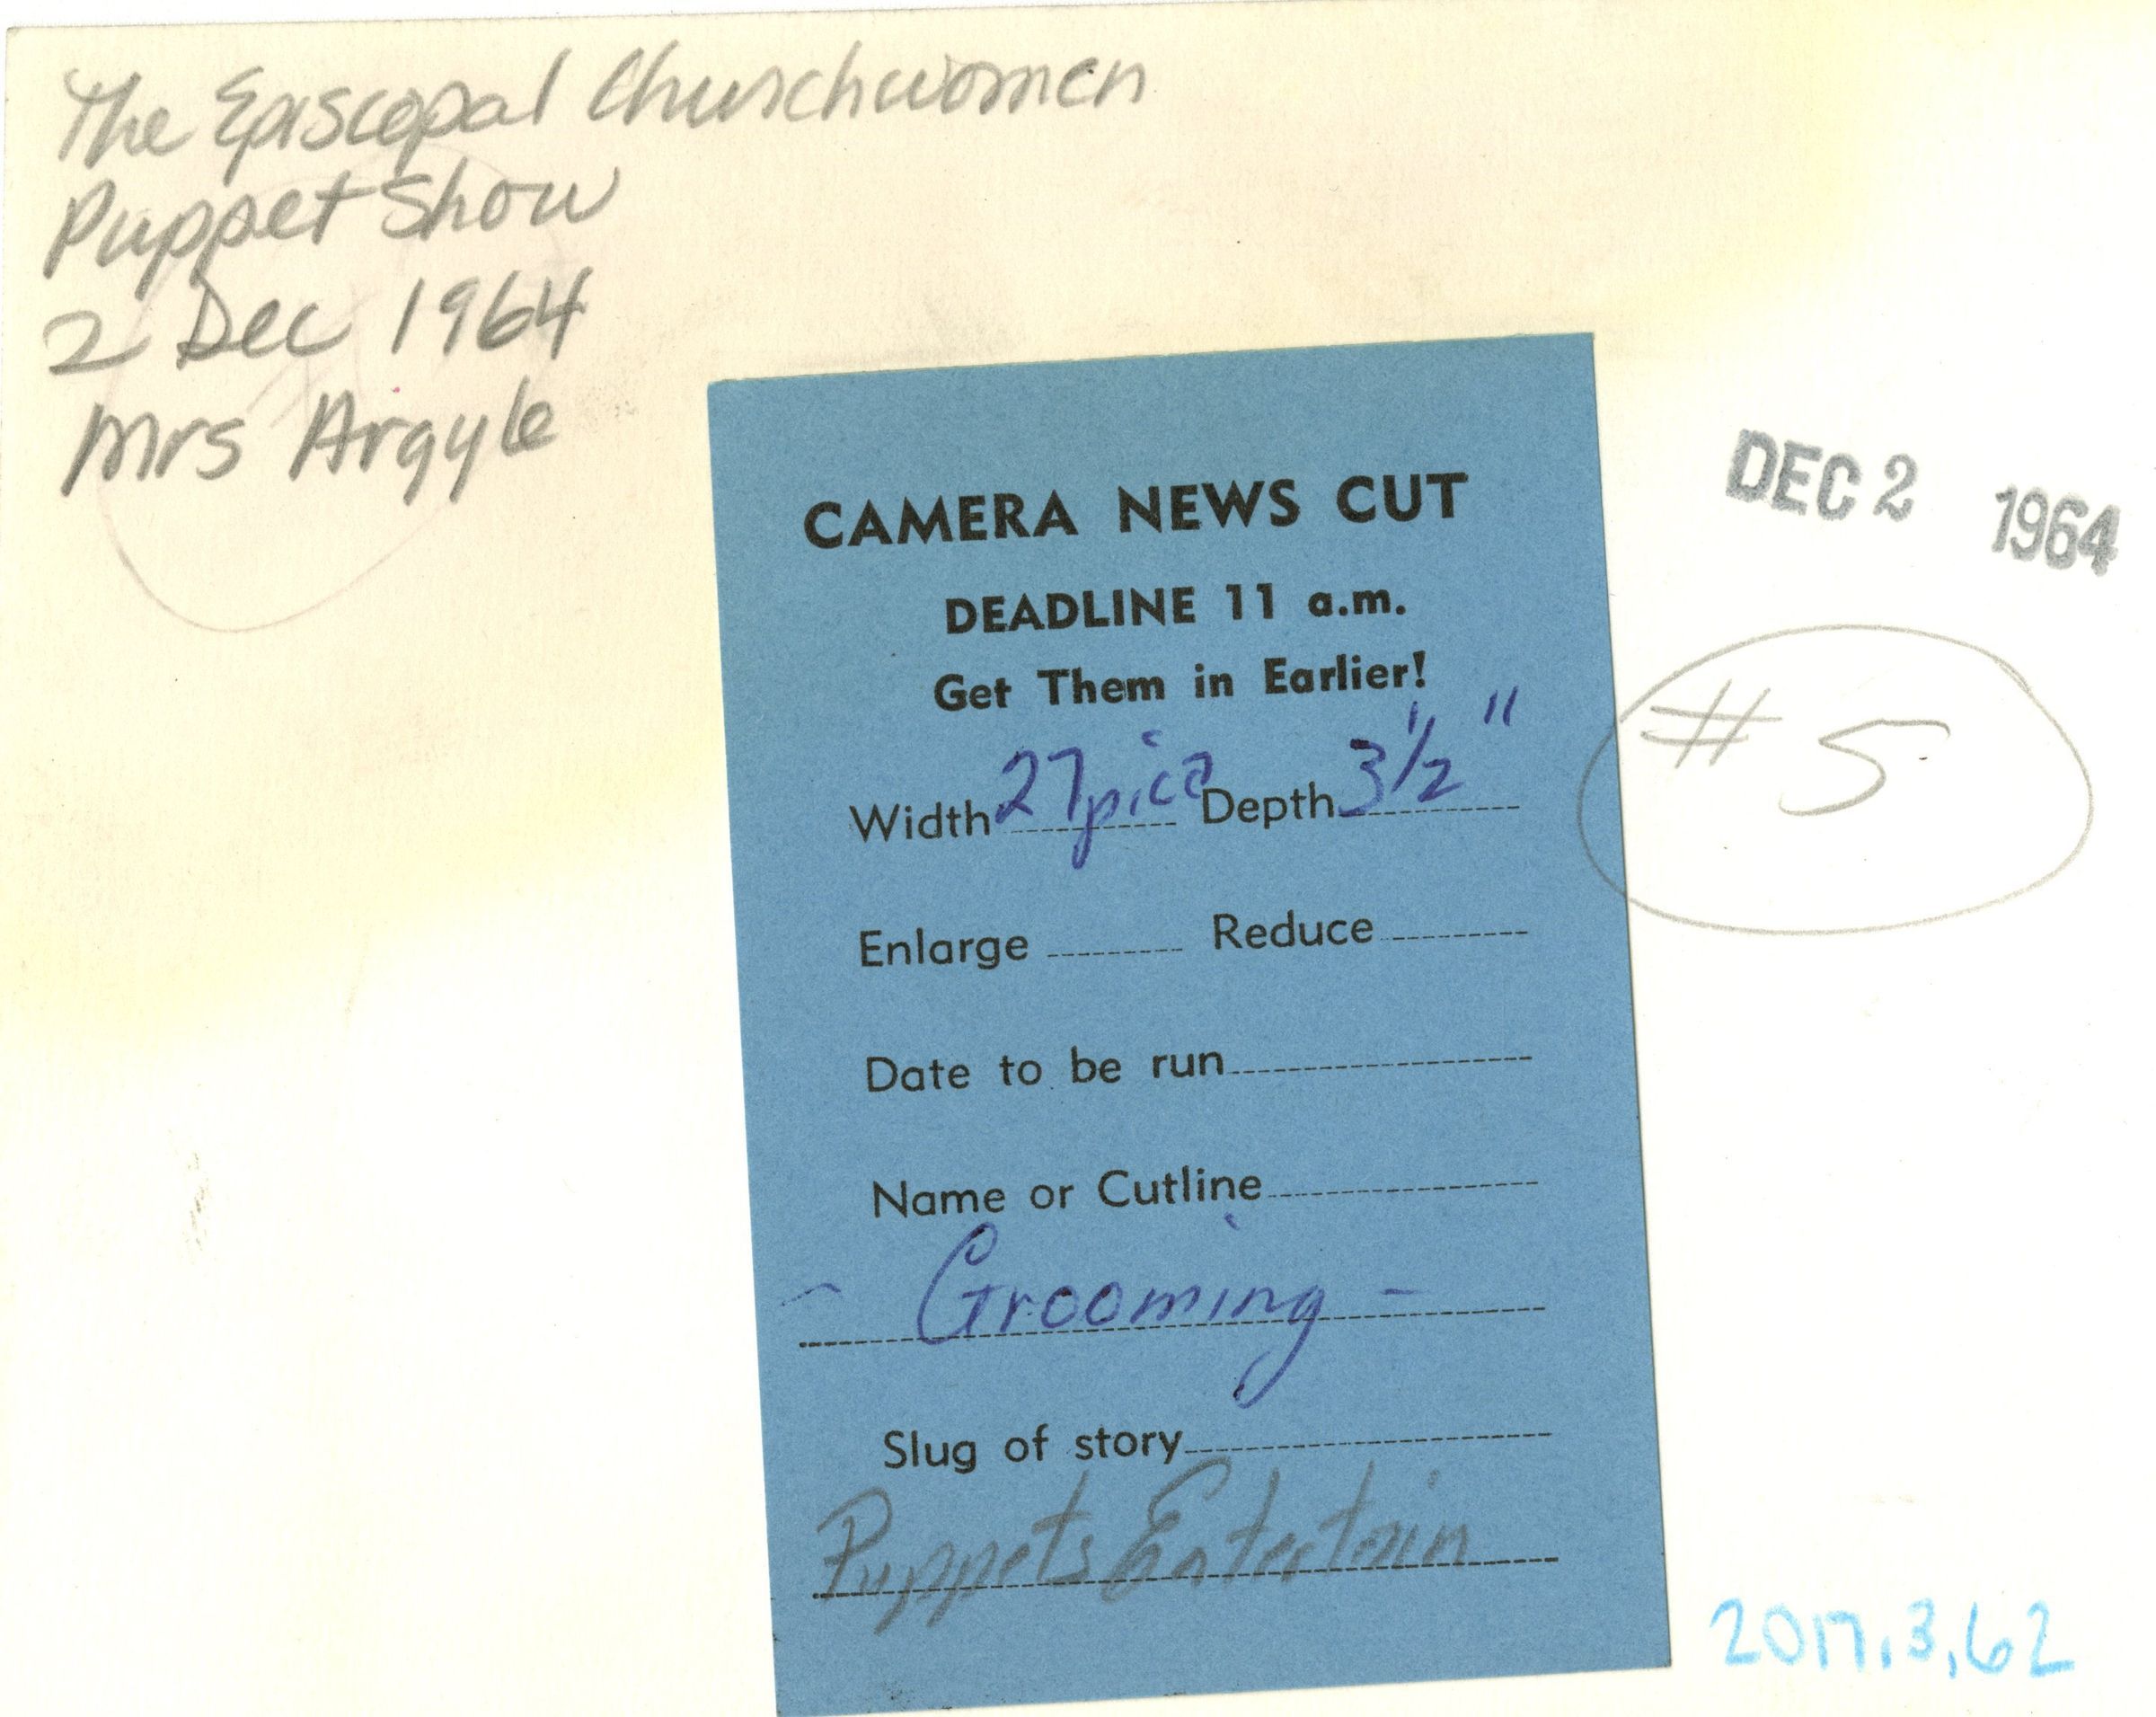 The Episcopal Churchwomen
Puppet Show
2 Dec 1964
Mrs Argyle
CAMERA NEWS CUT
DEADLINE 11 a.m.
Get Them in Earlier!
Width 27 pica Depth 3 1/2 "
Enlarge Reduce
Date to be run
Name or Cutline
- Grooming -
Slug of story
Puppets Entertain
DEC 2 1964
# 5
2017.3.62